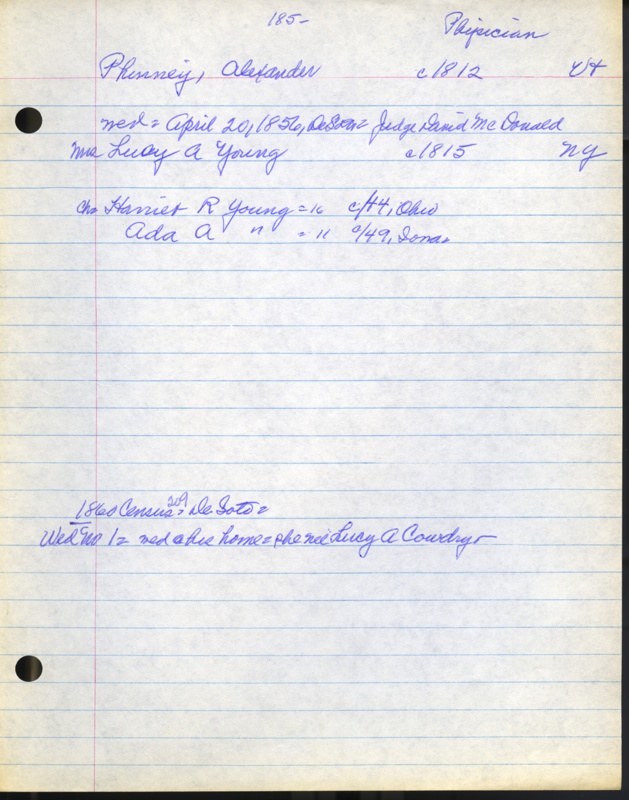 185-
Physician
Phinney, Alexander c1812 Vt
wed = April 20, 1856, DeSoto = Judge David McDonald
Mrs Lucy A Young c1815 NY
chn Harriet R Young = 16 c/44, Ohio
Ada A " = 11 c/49, Iowa
1860 Census 209: De Soto =
Wed No 1 = wed @ his home = she née Lucy A Cowdry -